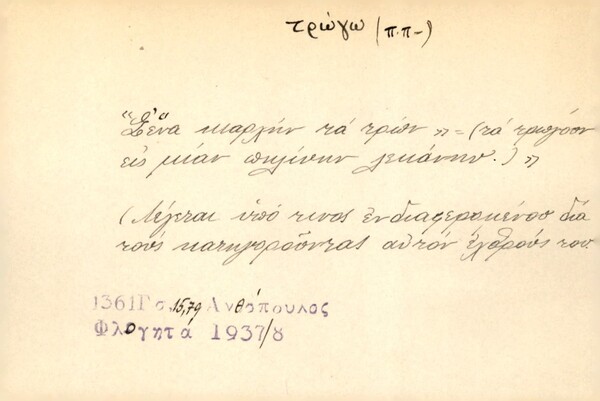 τρώγω (π.π-)
"Σ ἕνα καρλὴν τὰ τρών » = (τὰ τρώγουν
εἰς μίαν πηλίνην λεκάνην.) »
(Λέγεται ὑπό τινος ἐνδιαφερομένου διὰ
τοὺς κατηγοροῦντας αὐτὸν ἐχθρούς του
1361Γ σ. 15,79 Ανθόπουλος
Φλογητά 1937/8